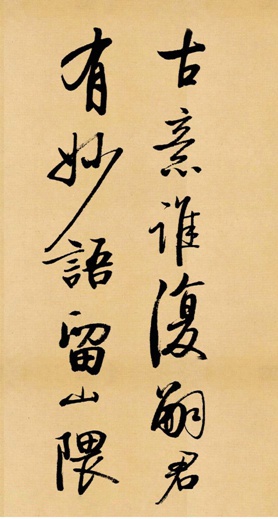 古意誰復嗣君
有妙語留山隈